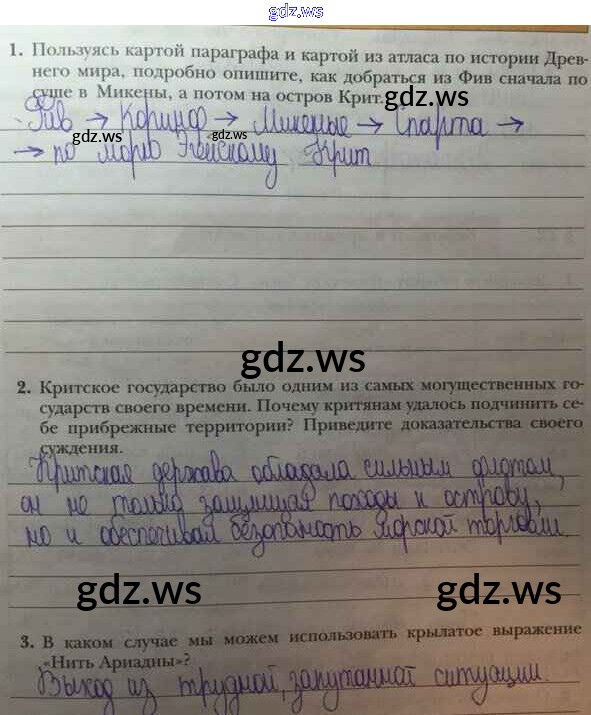 gdz.ws
1. Пользуясь картой параграфа и картой из атласа по истории Древ-
него мира, подробно опишите, как добраться из Фив сначала по
суше в Микены, а потом на остров Крит.
Фив → Коринф → Микены → Спарта →
gdz.ws gdz.ws
→ по морю Эгейскому Крит
gdz.ws
2. Критское государство было одним из самых могущественных го-
сударств своего времени. Почему критянам удалось подчинить се-
бе прибрежные территории? Приведите доказательства своего
суждения.
Критская держава обладала сильным флотом,
он не только защищал походы к острову,
но и обеспечивал безопасность морской торговли.
gdz.ws gdz.ws
3. В каком случае мы можем использовать крылатое выражение
«Нить Ариадны»?
Выход из трудной, запутанной ситуации.